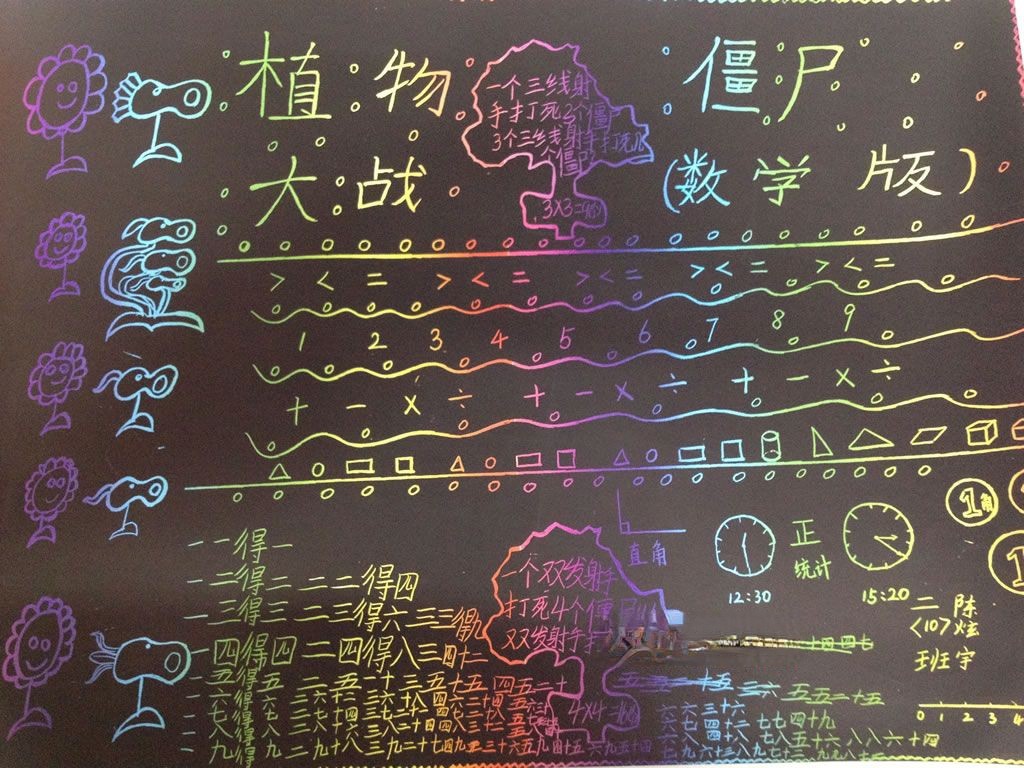 植物 僵尸
大战 (数学版)
一个三线射
手打死3个僵尸
3个三线射手打死几
个僵尸
3×3=9(个)
> < = > < = > < = > < = > < =
1 2 3 4 5 6 7 8 9
+ - × ÷ + - × ÷ + - × ÷
直角
正
统计
12:30
15:20
1角
1
二 陈
<10> 炫
班 宇
一个双发射手
打死4个僵尸
双双发射手
4×4=
一一得一
一二得二 二二得四
一三得三 二三得六 三三得九
一四得四 二四得八 三四十二 四四
一五得五 二五一十 三五十五 四五二十 五五二十五
一六得六 二六十二 三六十八 四六二十四 五六 六六三十六
一七得七 二七十四 三七二十一 四七二十八 五七 六七四十二 七七四十九
一八得八 二八十六 三八二十四 四八三十二 五八 六八四十八 七八五十六 八八六十四
一九得九 二九十八 三九二十七 四九三十六 五九四十五 六九五十四 七九六十三 八九七十二
0 1 2 3 4